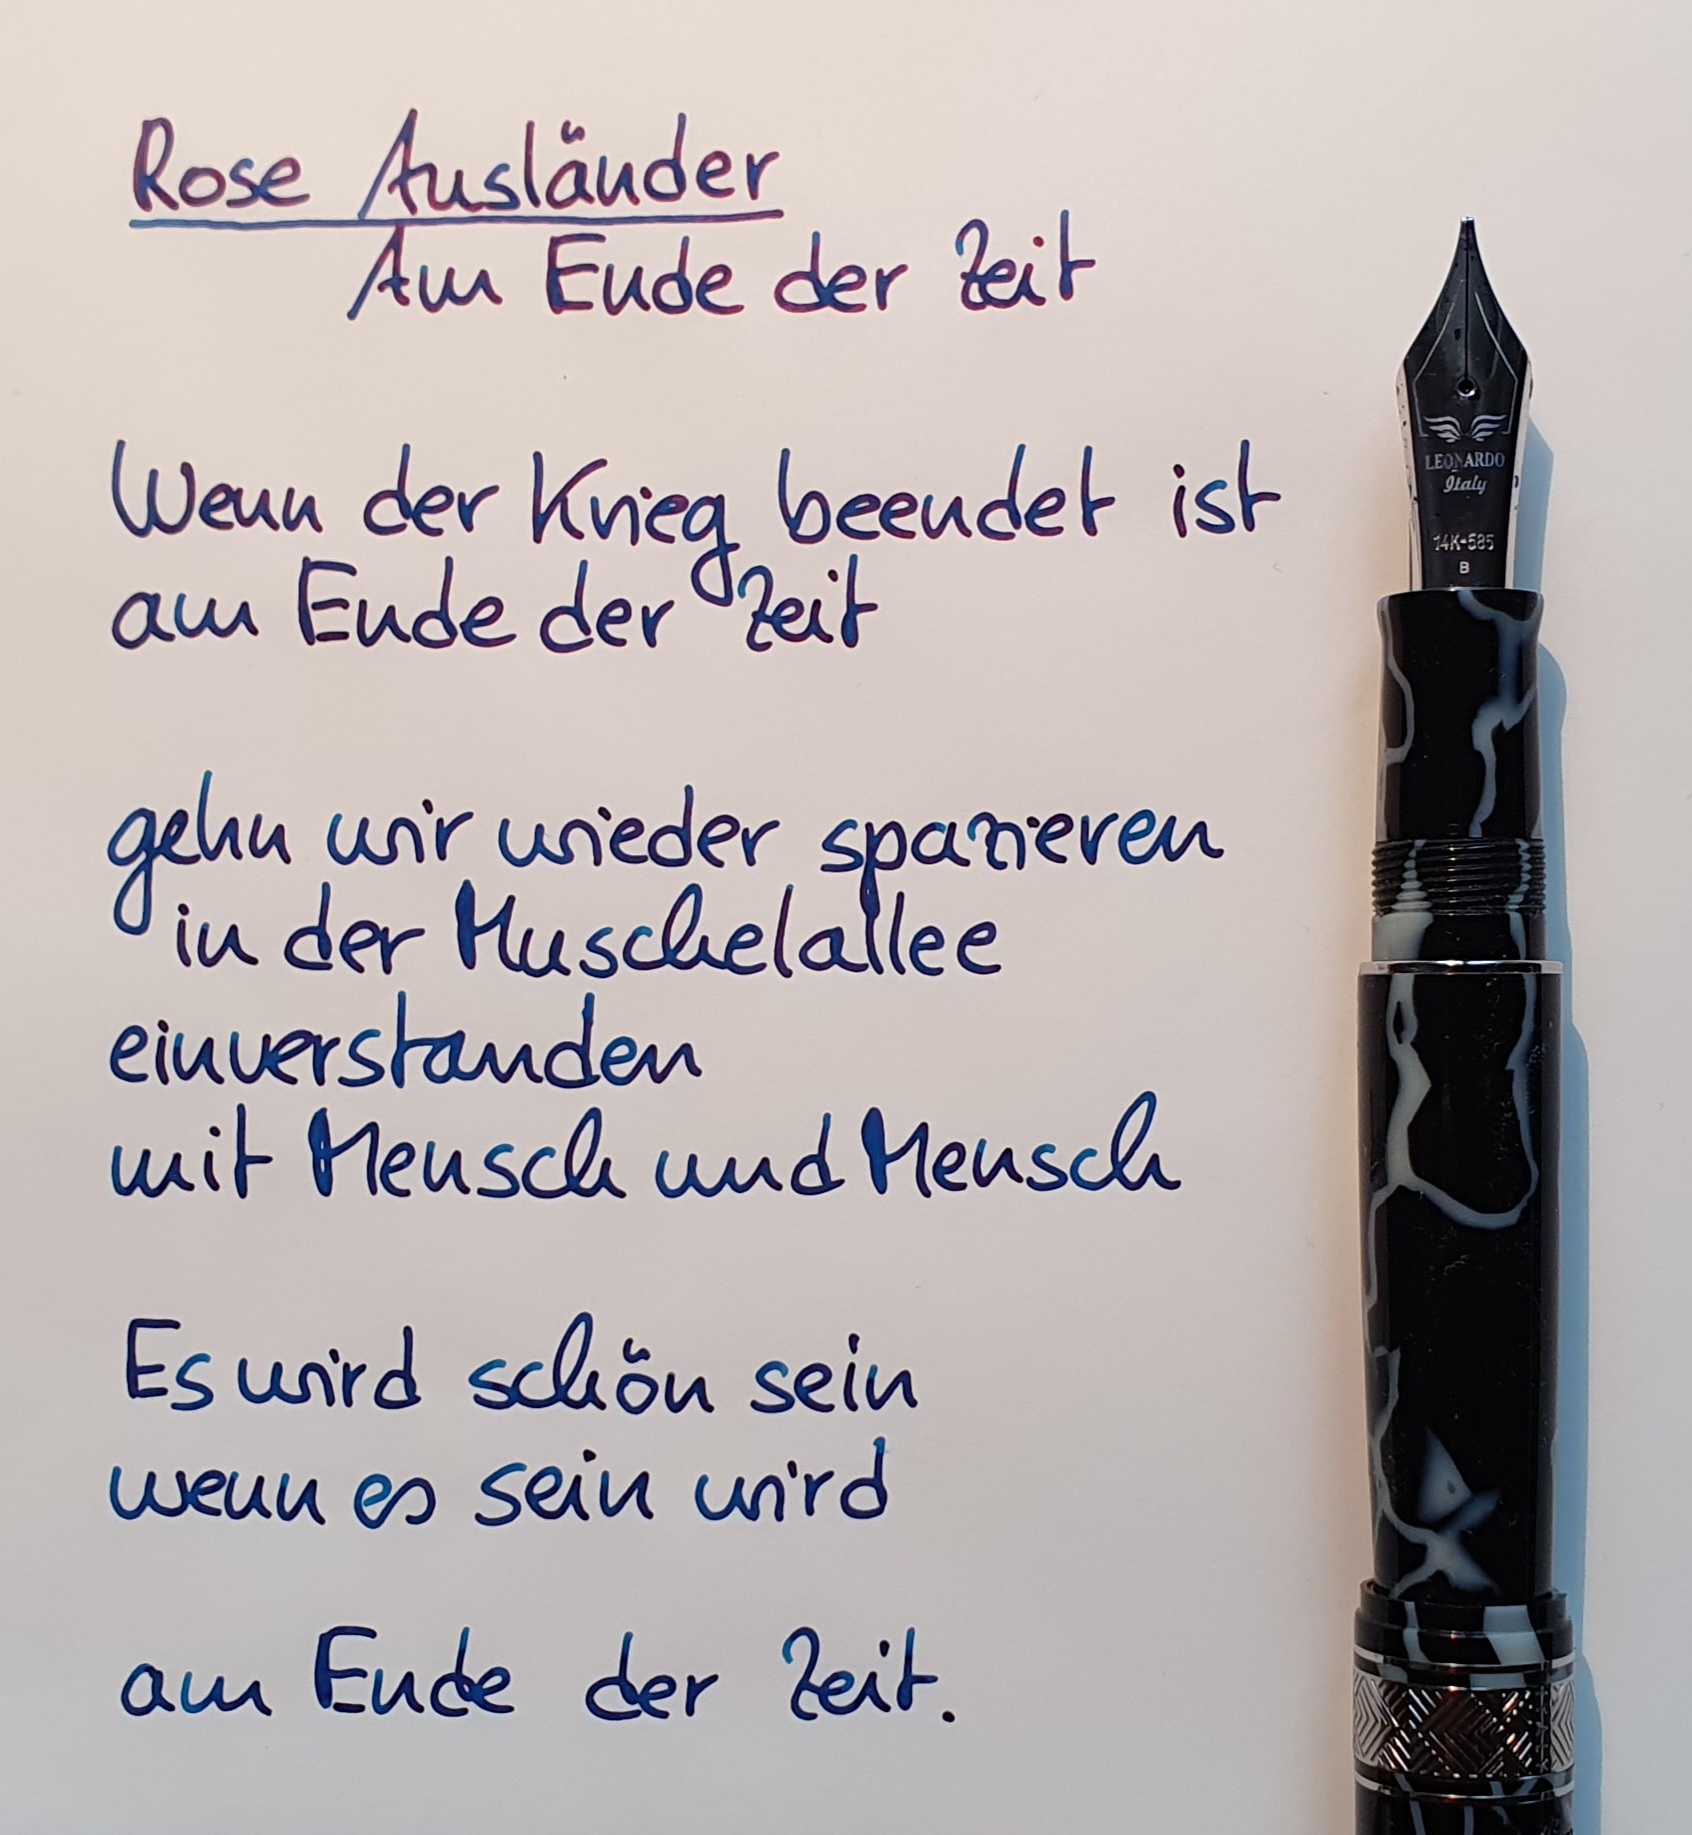 Rose Ausländer
Am Ende der Zeit
Wenn der Krieg beendet ist
am Ende der Zeit
gehn wir wieder spazieren
in der Muschelallee
einverstanden
mit Mensch und Mensch
Es wird schön sein
wenn es sein wird
am Ende der Zeit.
LEONARDO
Italy
14K-585
B